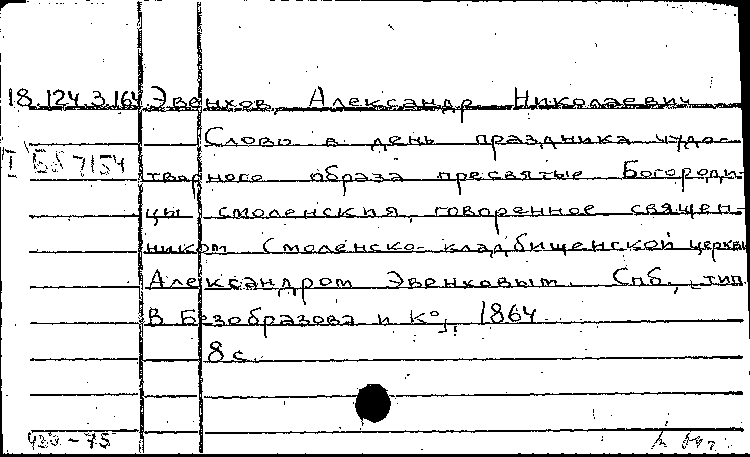 18.124.3.164 Эвенхов, Александр Николаевич
Слово в день праздника чудо-
I Б8 7154
тварного образа пресвятые Богороди-
цы смоленския, говоренное священ-
ником Смоленско-кладбищенской церкви
Александром Эвенховым. Спб., тип.
В Безобразова и К°, 1864
8 с.